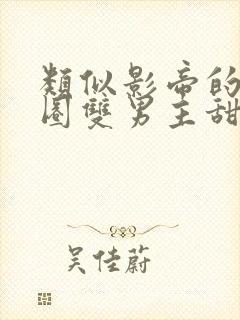 類似影帝的
圈雙男主甜
吴佳蔚